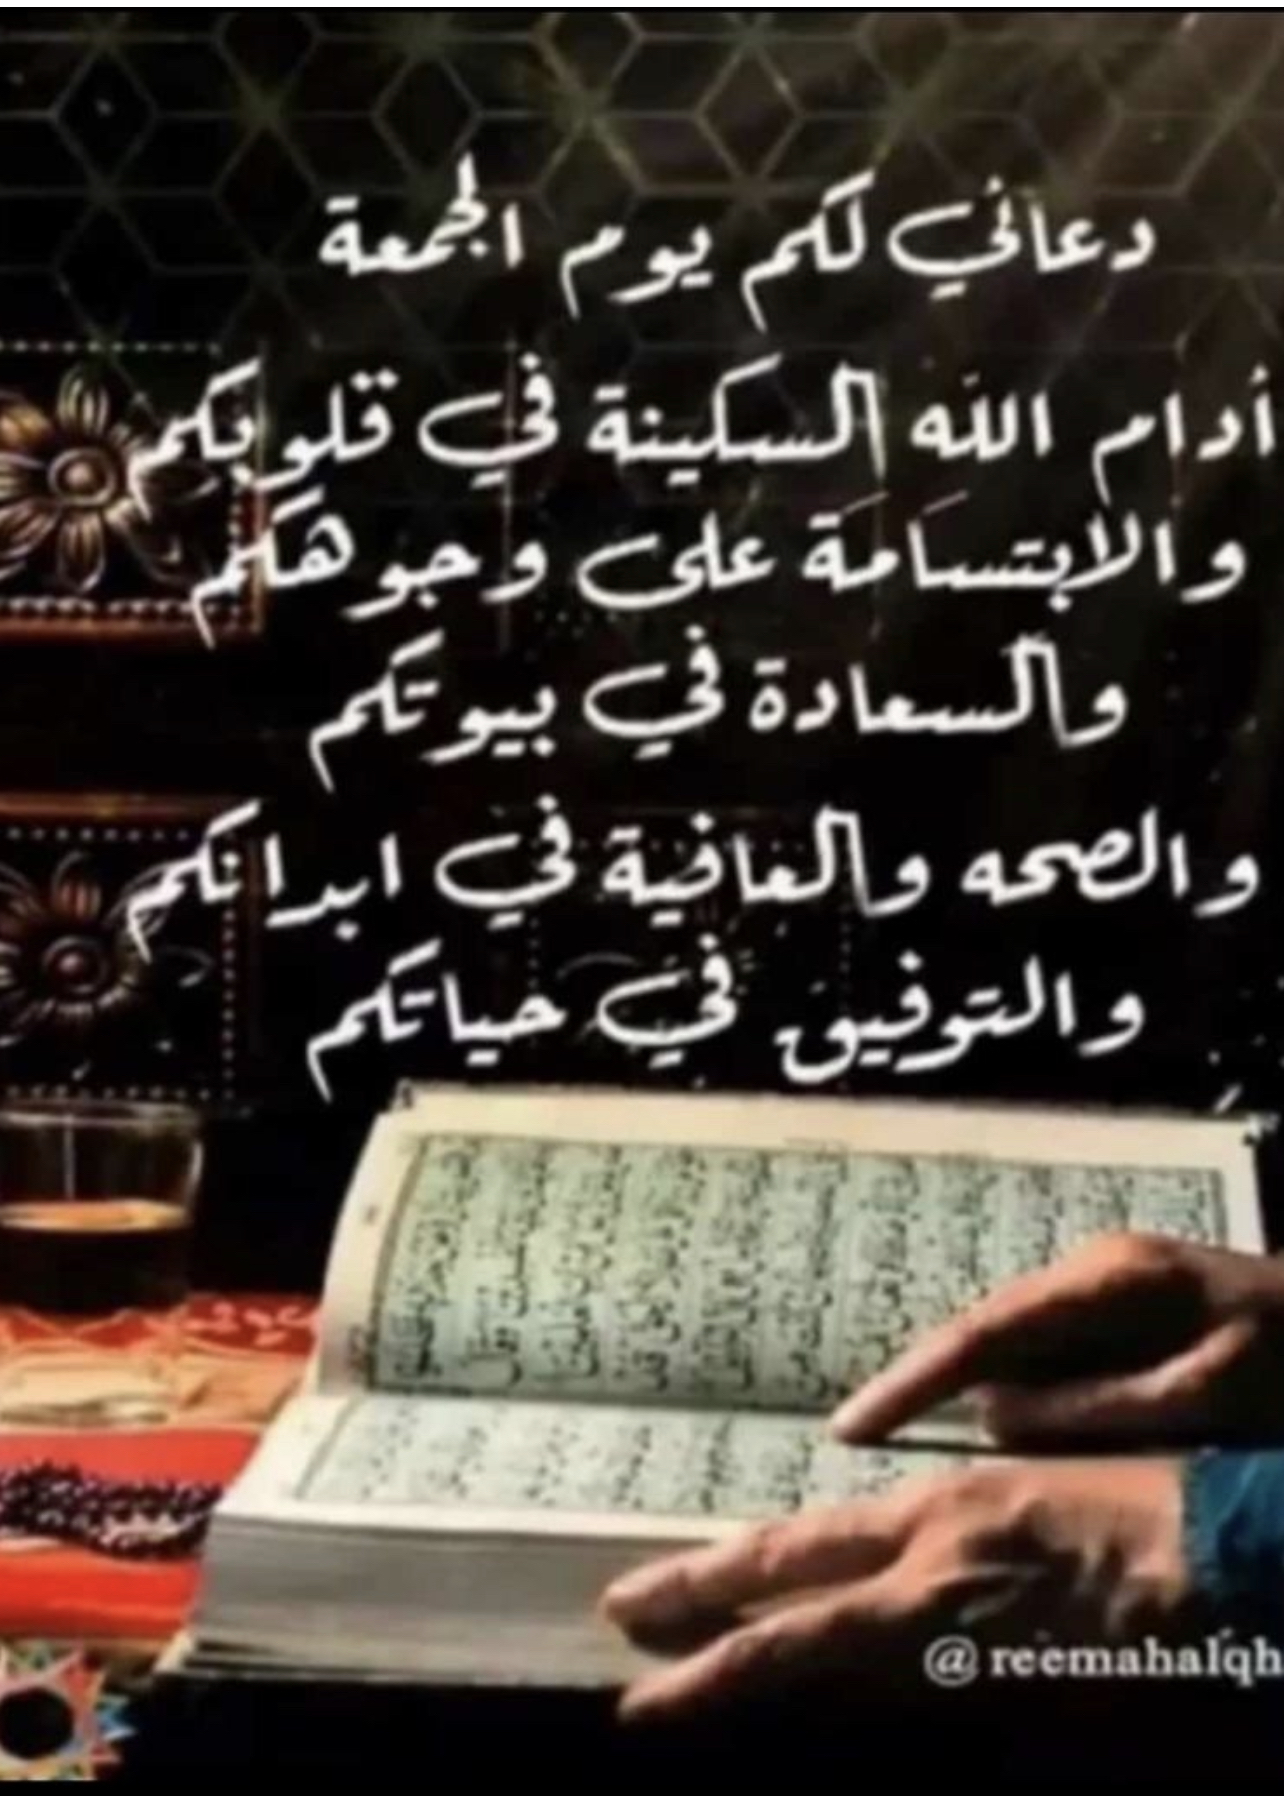 دعائي لكم يوم الجمعة
أدام الله السكينة في قلوبكم
والابتسامة على وجوهكم
والسعادة في بيوتكم
والصحه والعافية في ابدانكم
والتوفيق في حياتكم
@reemahalqh